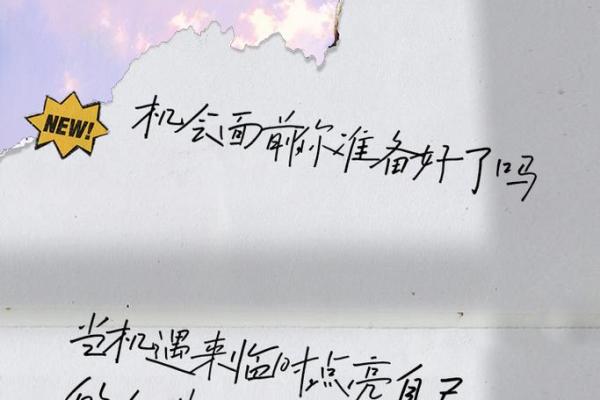 NEW!
机会面前你准备好了吗
当机遇来临时点亮自己